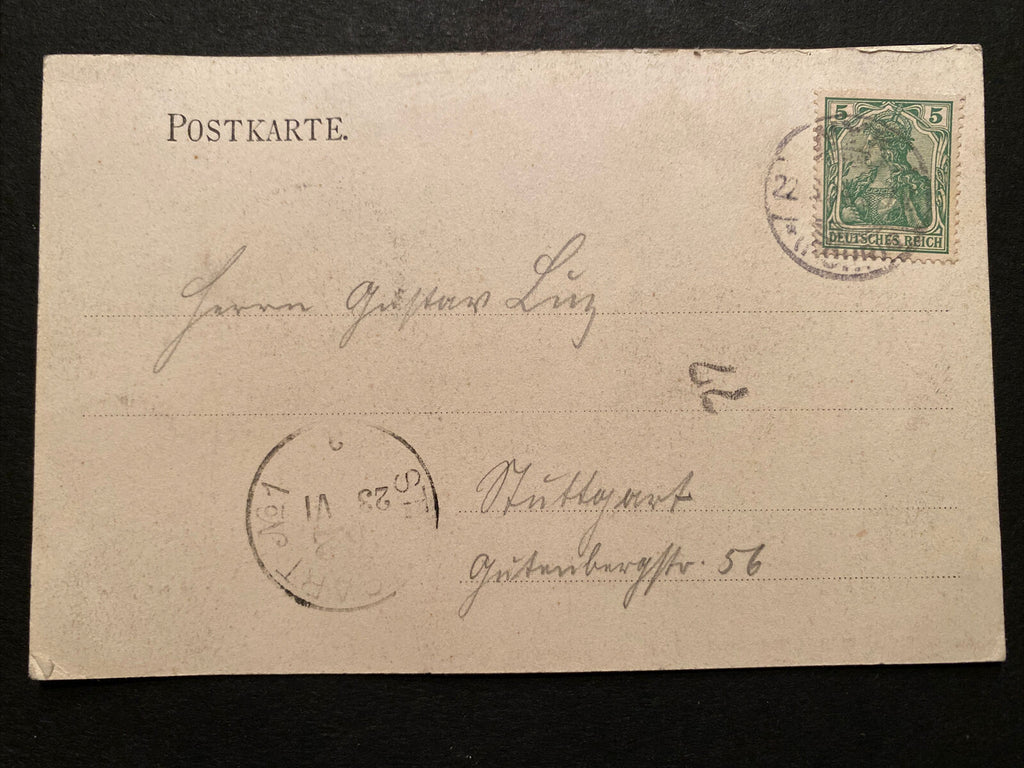 POSTKARTE.
5 5
DEUTSCHES REICH
22
Herrn Gustav Luz
Stuttgart
Gutenbergstr. 56
ST
GART No 1
23
VI